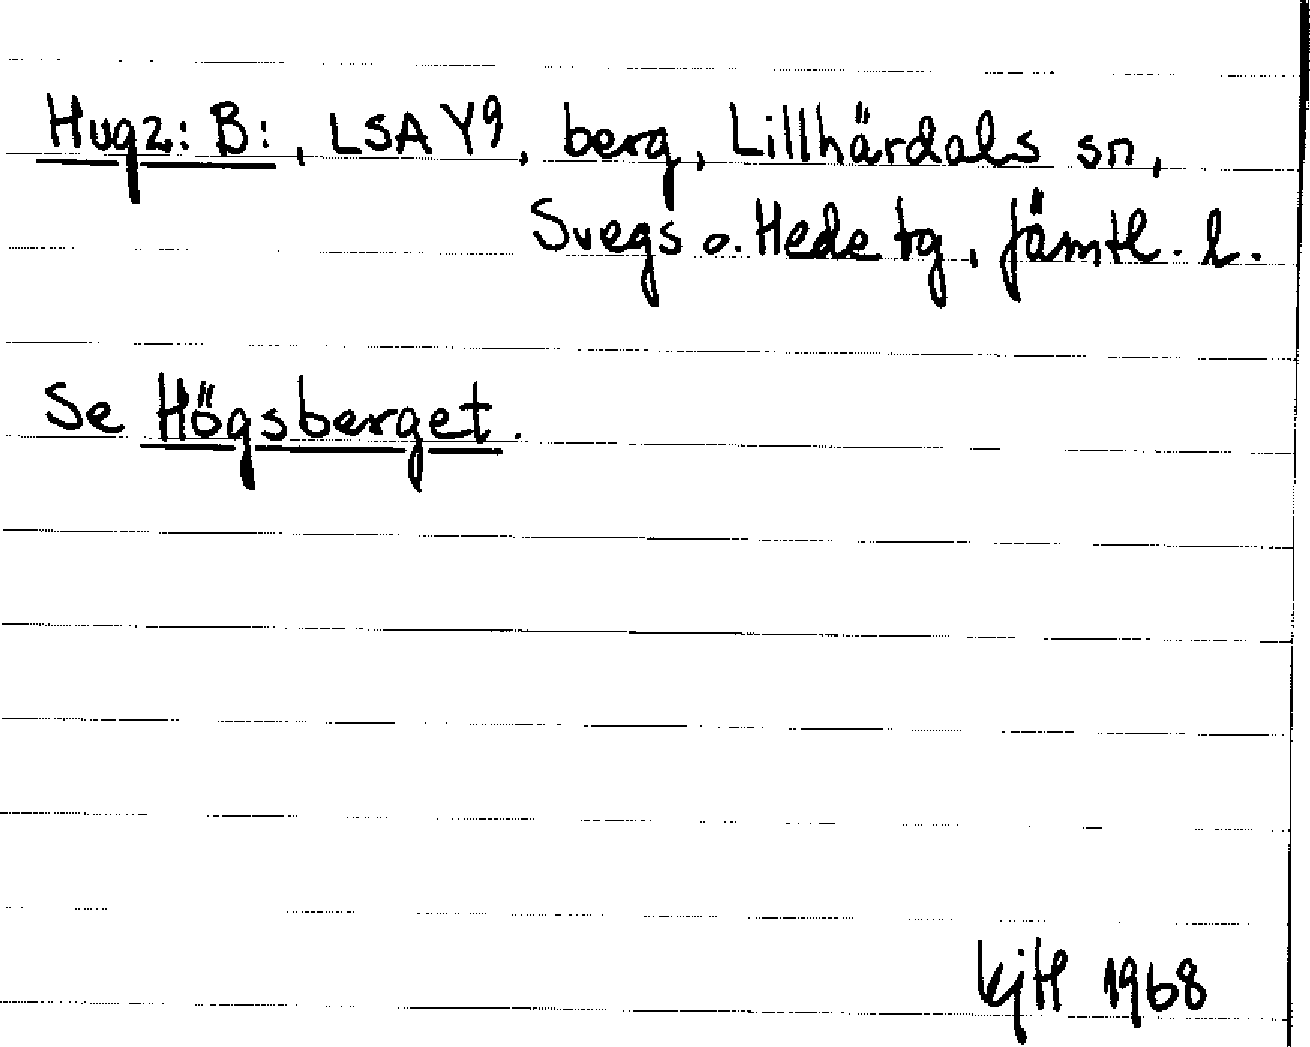 Hugz: B:, LSA Y9, berg, Lillhärdals sn,
Svegs o. Hede tg, Jämtl. l.
Se Högsberget.
KjH 1968